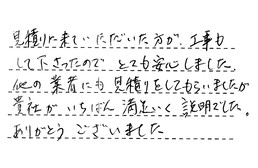 見積りに来ていただいた方が、工事も
して下さったので とても安心しました。
他の業者にも見積りをしてもらいましたが
貴社が いちばん 満足いく 説明でした。
ありがとう ございました